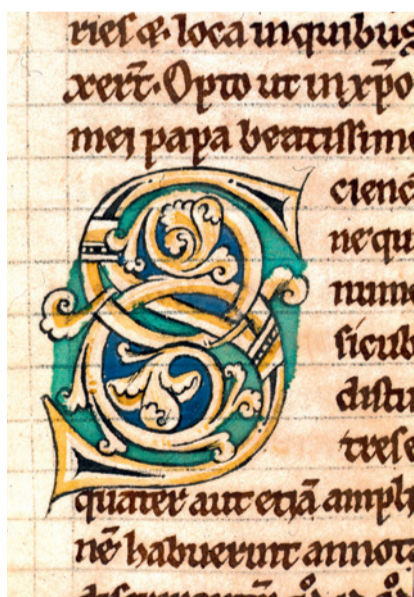 ries & loca inquibus
xert̄. Opto ut in xp̄o
mei papa beatissim
Scien
ne qui
num
sicub
distin
tres e
quater aut etiā ampli
nē habuerint annot